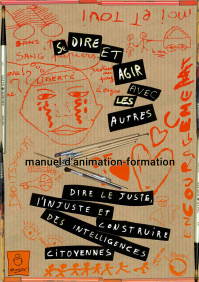 moi! et tout
Se DIRE
ET
AGIR
AVEC
LES
AUTRES
SANS
SANG
et LIBERTÉ
ENCOURAGEMENT
manuel d'animation-formation
DIRE LE JUSTE,
L'INJUSTE ET CONSTRUIRE
DES INTELLIGENCES
CITOYENNES